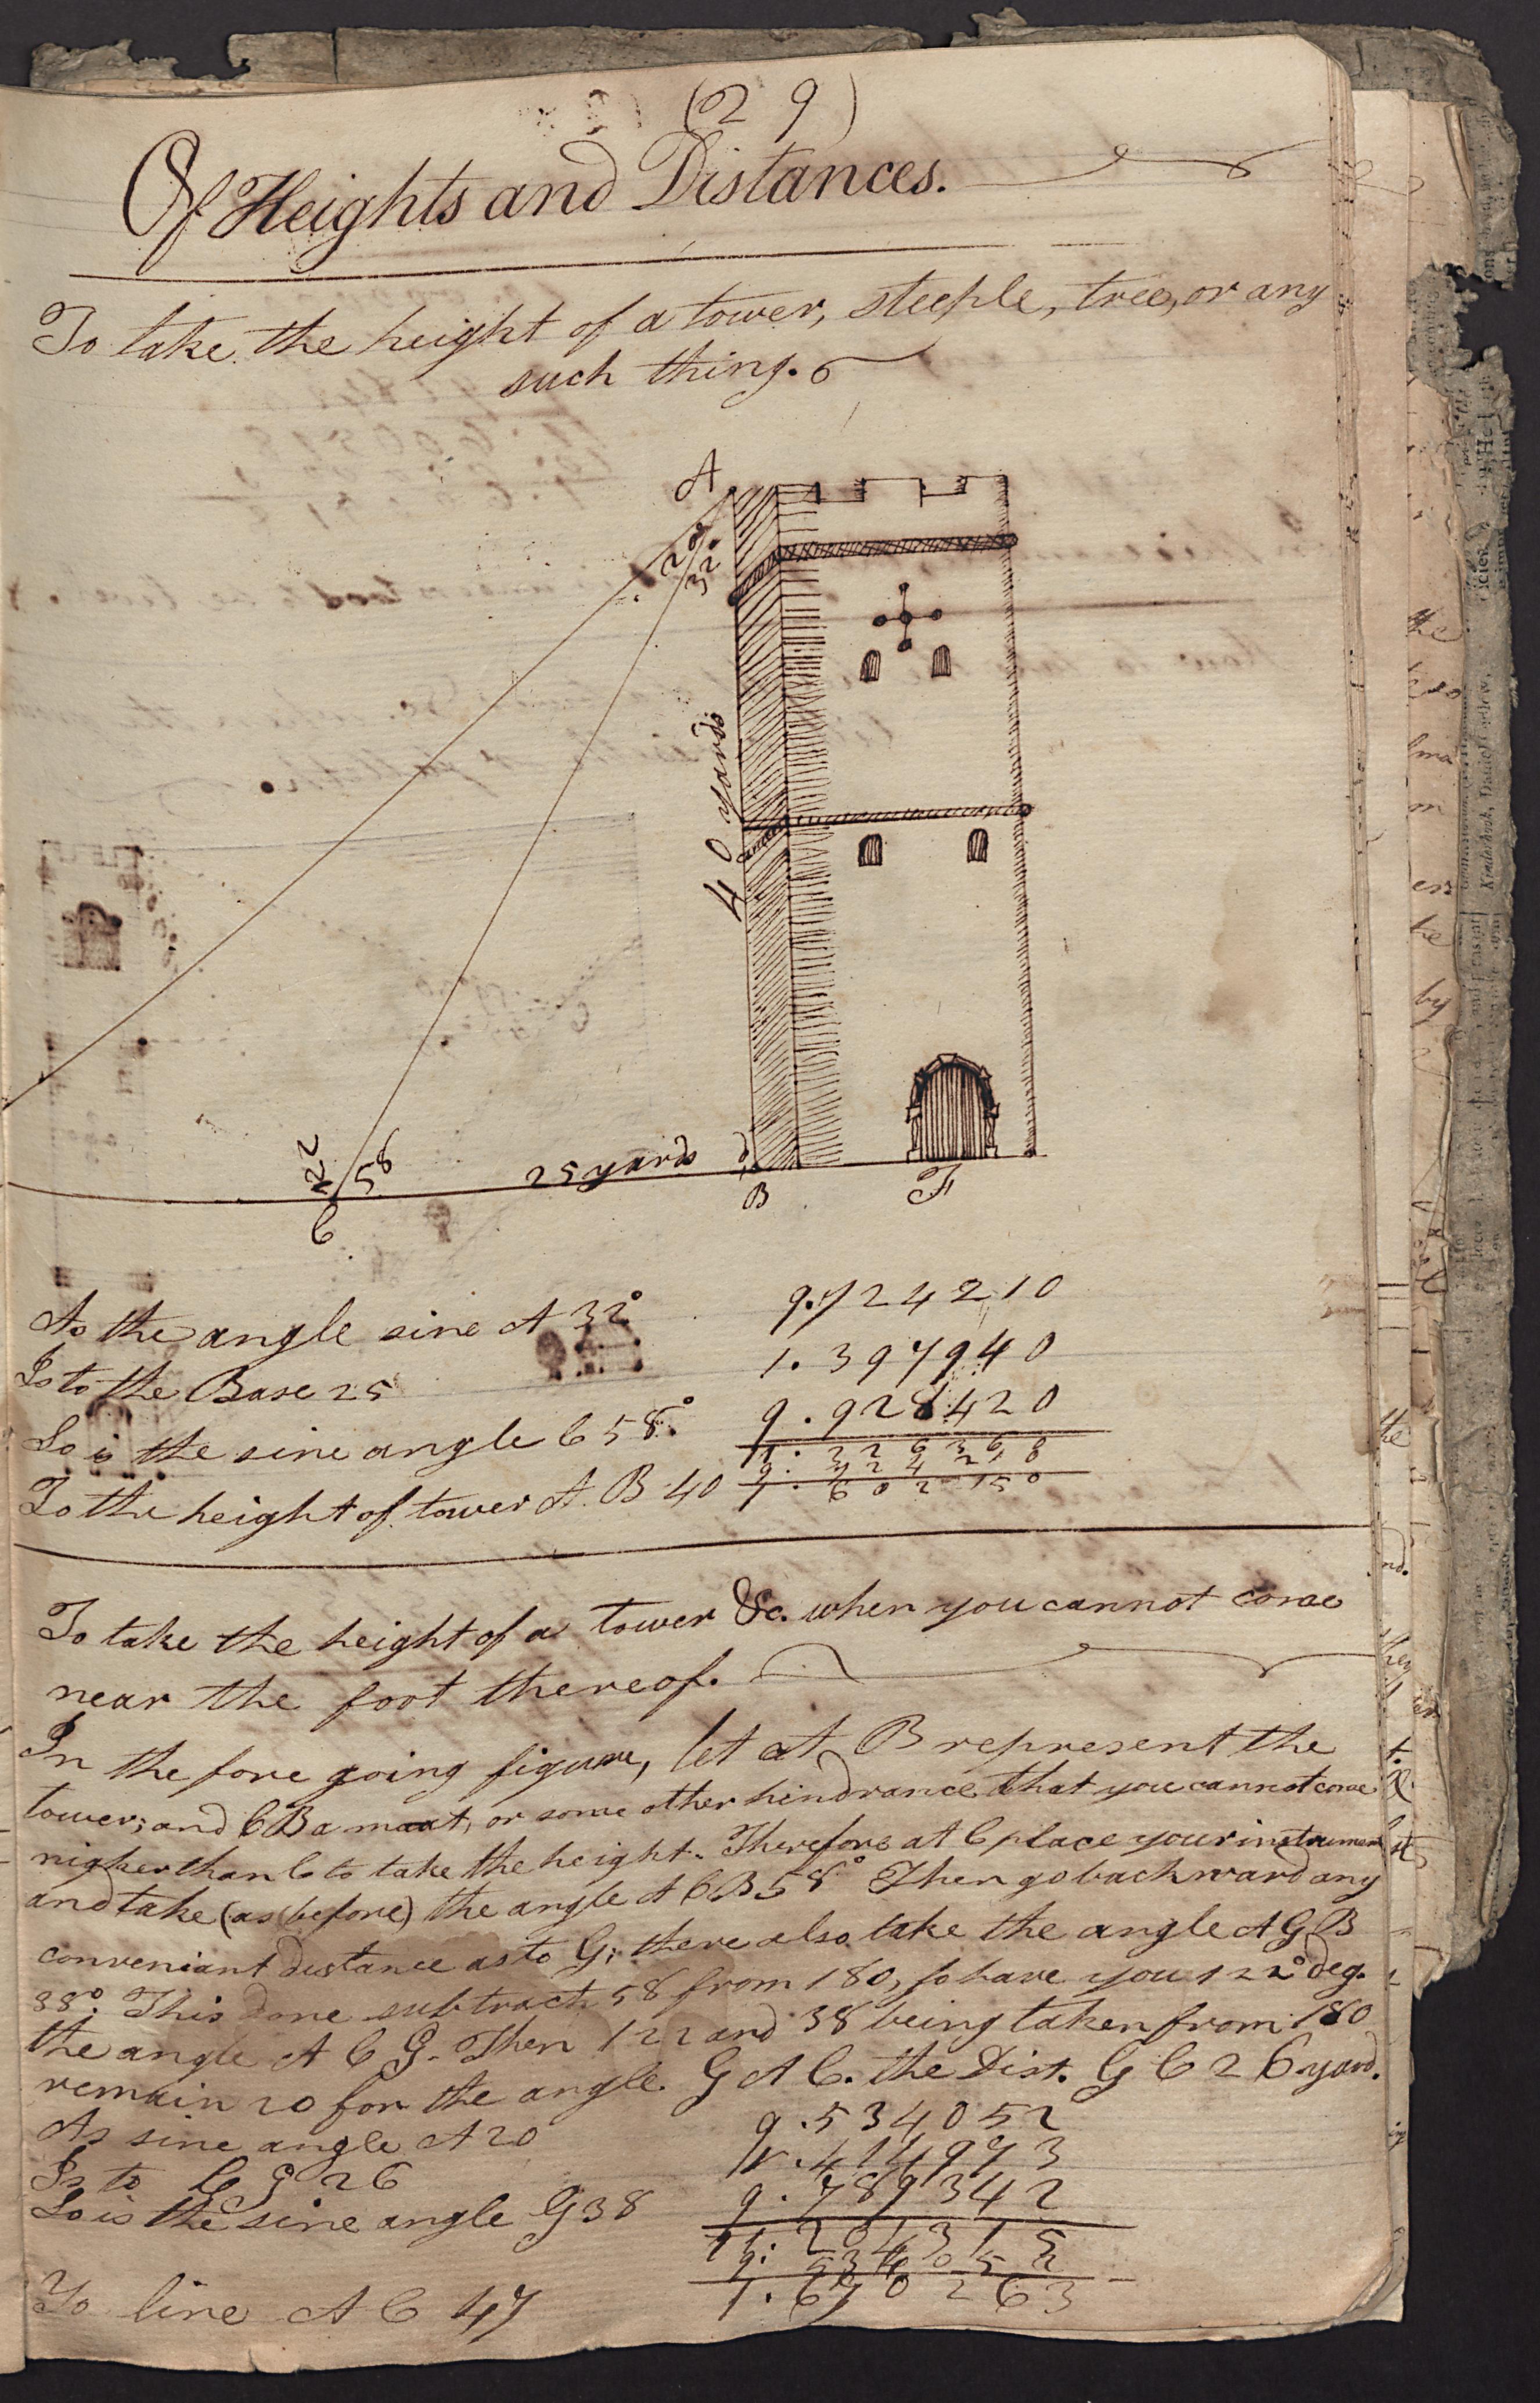 (29)
Of Heights and Distances.
To take the height of a tower, steeple, tree, or any
such thing.
A
20
32°
40 yards
122
58
25 yards
d
C
B
F
As the angle sine A 32° 9.724210
Is to the Base 25 1.397940
So is the sine angle C 58° 9.928420
11.326368
9.724210
To the height of tower A.B 40 1.602150
To take the height of a tower &c. when you cannot come
near the foot thereof.
In the fore going figure, let A B represent the
tower; and C B a moat, or some other hindrance that you cannot come
nigher than C to take the height. Therefore at C place your instrument
and take (as before) the angle A C B 58° Then go backward any
conveniant distance as to G; there also take the angle A G B
38°. This done subtract 58 from 180, so have you 122° deg.
the angle A C G. Then 122 and 38 being taken from 180
remain 20 for the angle G A C. the Dist. G C 26 yard.
As sine angle A 20 9.534052
Is to C G 26 1.414973
So is the sine angle G 38 9.789342
11.204315
9.534052
To line A C 47 1.670263